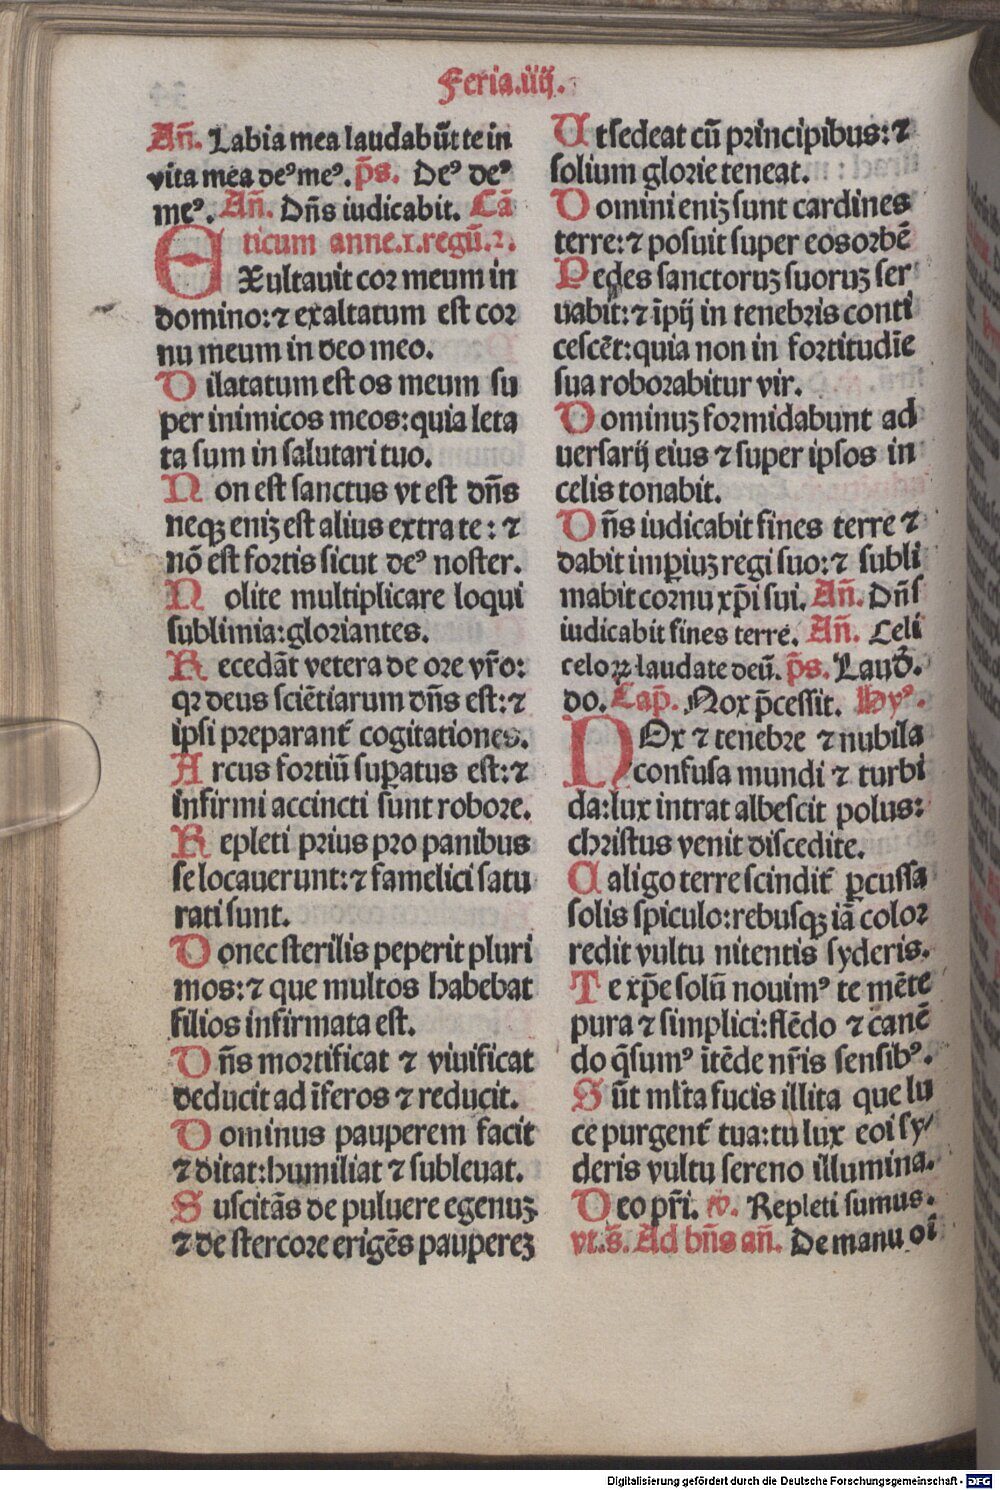 Feria.iiij.
An̄. Labia mea laudabūt te in
vita mea deꝰ meꝰ. p̄s. Deꝰ deꝰ
meꝰ. An̄. Dn̄s iudicabit. Cā
ticum anne.1.regū.2.
EXultauit cor meum in
domino: ⁊ exaltatum est cor
nu meum in deo meo.
Dilatatum est os meum su
per inimicos meos: quia leta
ta sum in salutari tuo.
Non est sanctus vt est dn̄s
neqꝫ eniꝫ est alius extra te: ⁊
nō est fortis sicut deꝰ noster.
Nolite multiplicare loqui
sublimia: gloriantes.
Recedāt vetera de ore vr̄o:
qꝛ deus sciētiarum dn̄s est: ⁊
ipsi preparant̄ cogitationes.
Arcus fortiū suꝑatus est: ⁊
infirmi accincti sunt robore.
Repleti prius pro panibus
se locauerunt: ⁊ famelici satu
rati sunt.
Donec sterilis peperit pluri
mos: ⁊ que multos habebat
filios infirmata est.
Dn̄s mortificat ⁊ viuificat
deducit ad īferos ⁊ reducit.
Dominus pauperem facit
⁊ ditat: humiliat ⁊ subleuat.
Suscitās de puluere egenuꝫ
⁊ de stercore erigēs paupereꝫ
Ut sedeat cū principibus: ⁊
solium glorie teneat.
Domini eniꝫ sunt cardines
terre: ⁊ posuit super eos orbē
Pedes sanctoruꝫ suoruꝫ ser
uabit: ⁊ īpij in tenebris conti
cescēt: quia non in fortitudīe
sua roborabitur vir.
Dominuꝫ formidabunt ad
uersarij eius ⁊ super ipsos in
celis tonabit.
Dn̄s iudicabit fines terre ⁊
dabit imꝑiuꝫ regi suo: ⁊ subli
mabit cornu xp̄i sui. An̄. Dn̄s
iudicabit fines terre. An̄. Celi
celoꝝ laudate deū. p̄s. Laud̄.
do. Cap̄. Nox p̄cessit. Hyꝰ.
NOx ⁊ tenebre ⁊ nubila
confusa mundi ⁊ turbi
da: lux intrat albescit polus:
christus venit discedite.
Caligo terre scindit̄ ꝑcussa
solis spiculo: rebusqꝫ iā color
redit vultu nitentis syderis.
Te xp̄e solū nouimꝰ te mēte
pura ⁊ simplici: flēdo ⁊ canē
do q̄sumꝰ ītēde nr̄is sensibꝰ.
Sūt ml̄ta fucis illita que lu
ce purgent̄ tua: tu lux eoi sy/
deris vultu sereno illumina.
Deo pr̄i. ꝟ. Repleti sumus.
vt.s̄. Ad bn̄s an̄. De manu oī
Digitalisierung gefördert durch die Deutsche Forschungsgemeinschaft - DFG